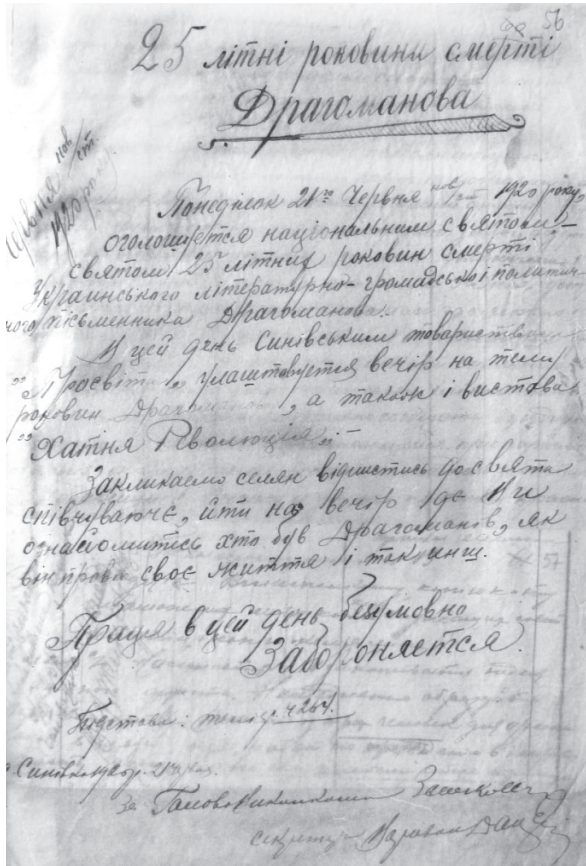 56
25 літні роковини смерті
Драгоманова
нов/ст.
1920 року
Понеділок 21го Червня нов/ст 1920 року,
оголошується національним святом –
святом 25 літних роковин смерті
Украинського літературно-громадської і политич-
ного пісьменника Драгоманова.
В цей день Синівським товариством
„Просвіта„ улаштовується вечір на тему
роковин Драгоманова, а також і вистава
„Хатня Революція„
Закликаємо селян віднистись до свята
співчуваючє, йти на вечір де
ознайомитись хто був Драгоманов, як
він провів своє життя і так инш.
Праця в цей день безумовно
Забороняєтся.
Підстава: 4264.
За Голова Виконкома
секретарь